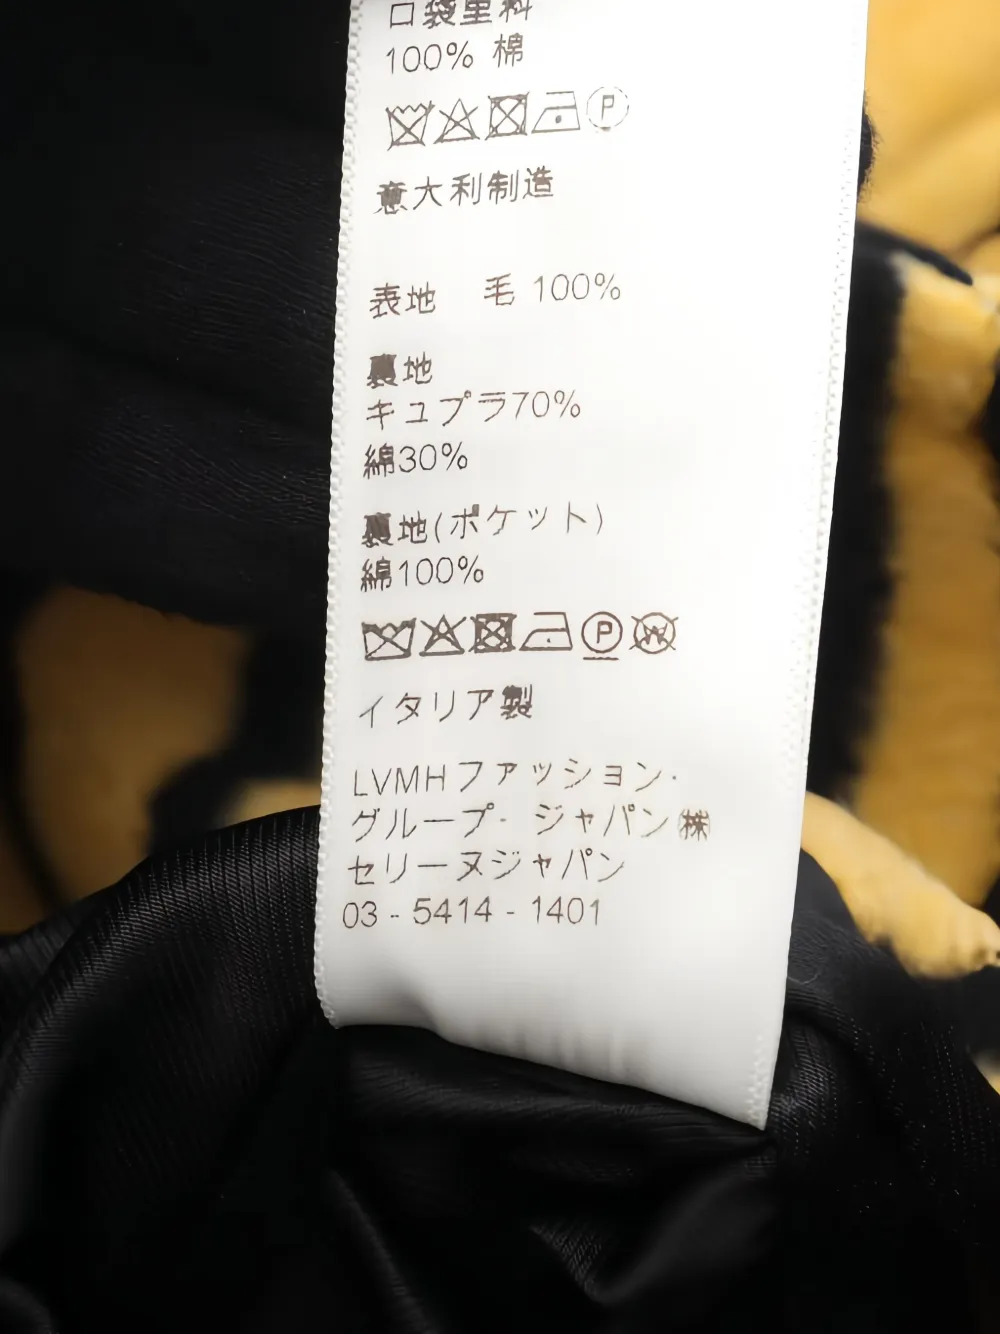 口袋里料
100% 棉
P
意大利制造
表地 毛 100%
裏地
キュプラ70%
綿30%
裏地(ポケット)
綿100%
P W
イタリア製
LVMHファッション・
グループ・ジャパン㈱
セリーヌジャパン
03 - 5414 - 1401